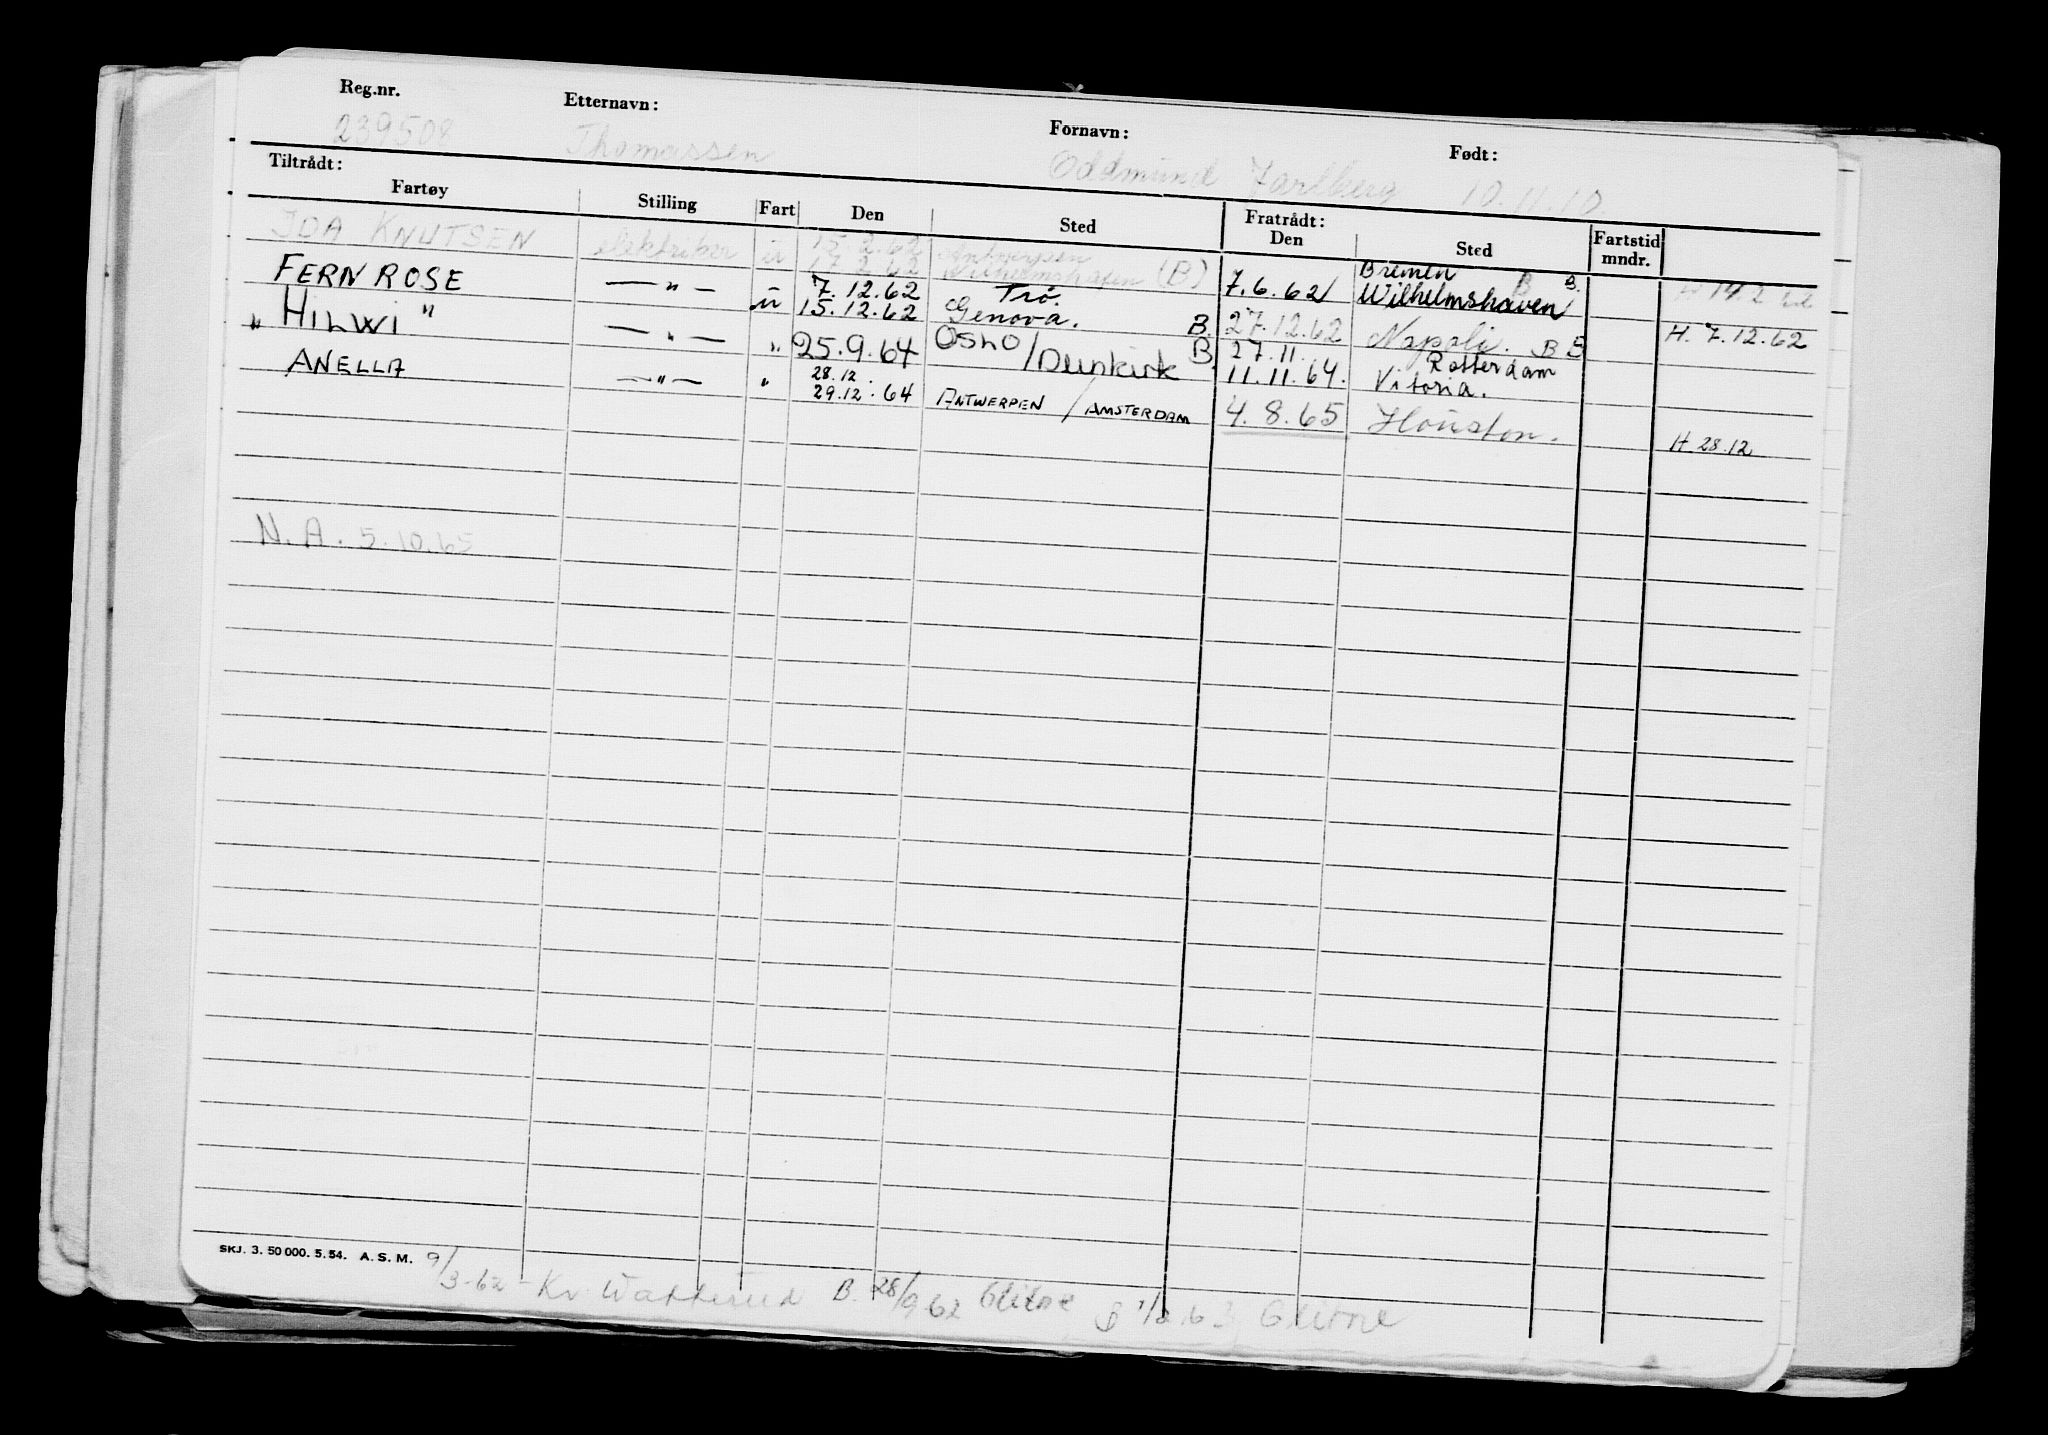 Reg.nr. Etternavn: Fornavn: Født:
239508 Thomassen Oddmund Jarlberg 10.11.10
Tiltrådt: Fratrådt:
Fartøy Stilling Fart Den Sted Den Sted Fartstid mndr.
IDA KNUTSEN elektriker u 15.2.62 Antwerpen
17.2.62 Wilhelmshafen (B) 7.6.62 Bremen B. Wilhelmshaven B H 14.2
FERN ROSE — " — u 7.12.62 Trö.
15.12.62 Genova. B. 27.12.62 Napoli. B H. 7.12.62
" HILWI " — " — " 25.9.64 OSLO / Dunkirk B. 27.11. Rotterdam
11.11.64. Vitoria.
ANELLA — " — " 28.12.
29.12.64 ANTWERPEN / AMSTERDAM 4.8.65 Houston. H. 28.12
N.A. 5.10.65
SKJ. 3. 50 000. 5. 54. A. S. M. 9/3-62 - Kr. B. 28/9 62